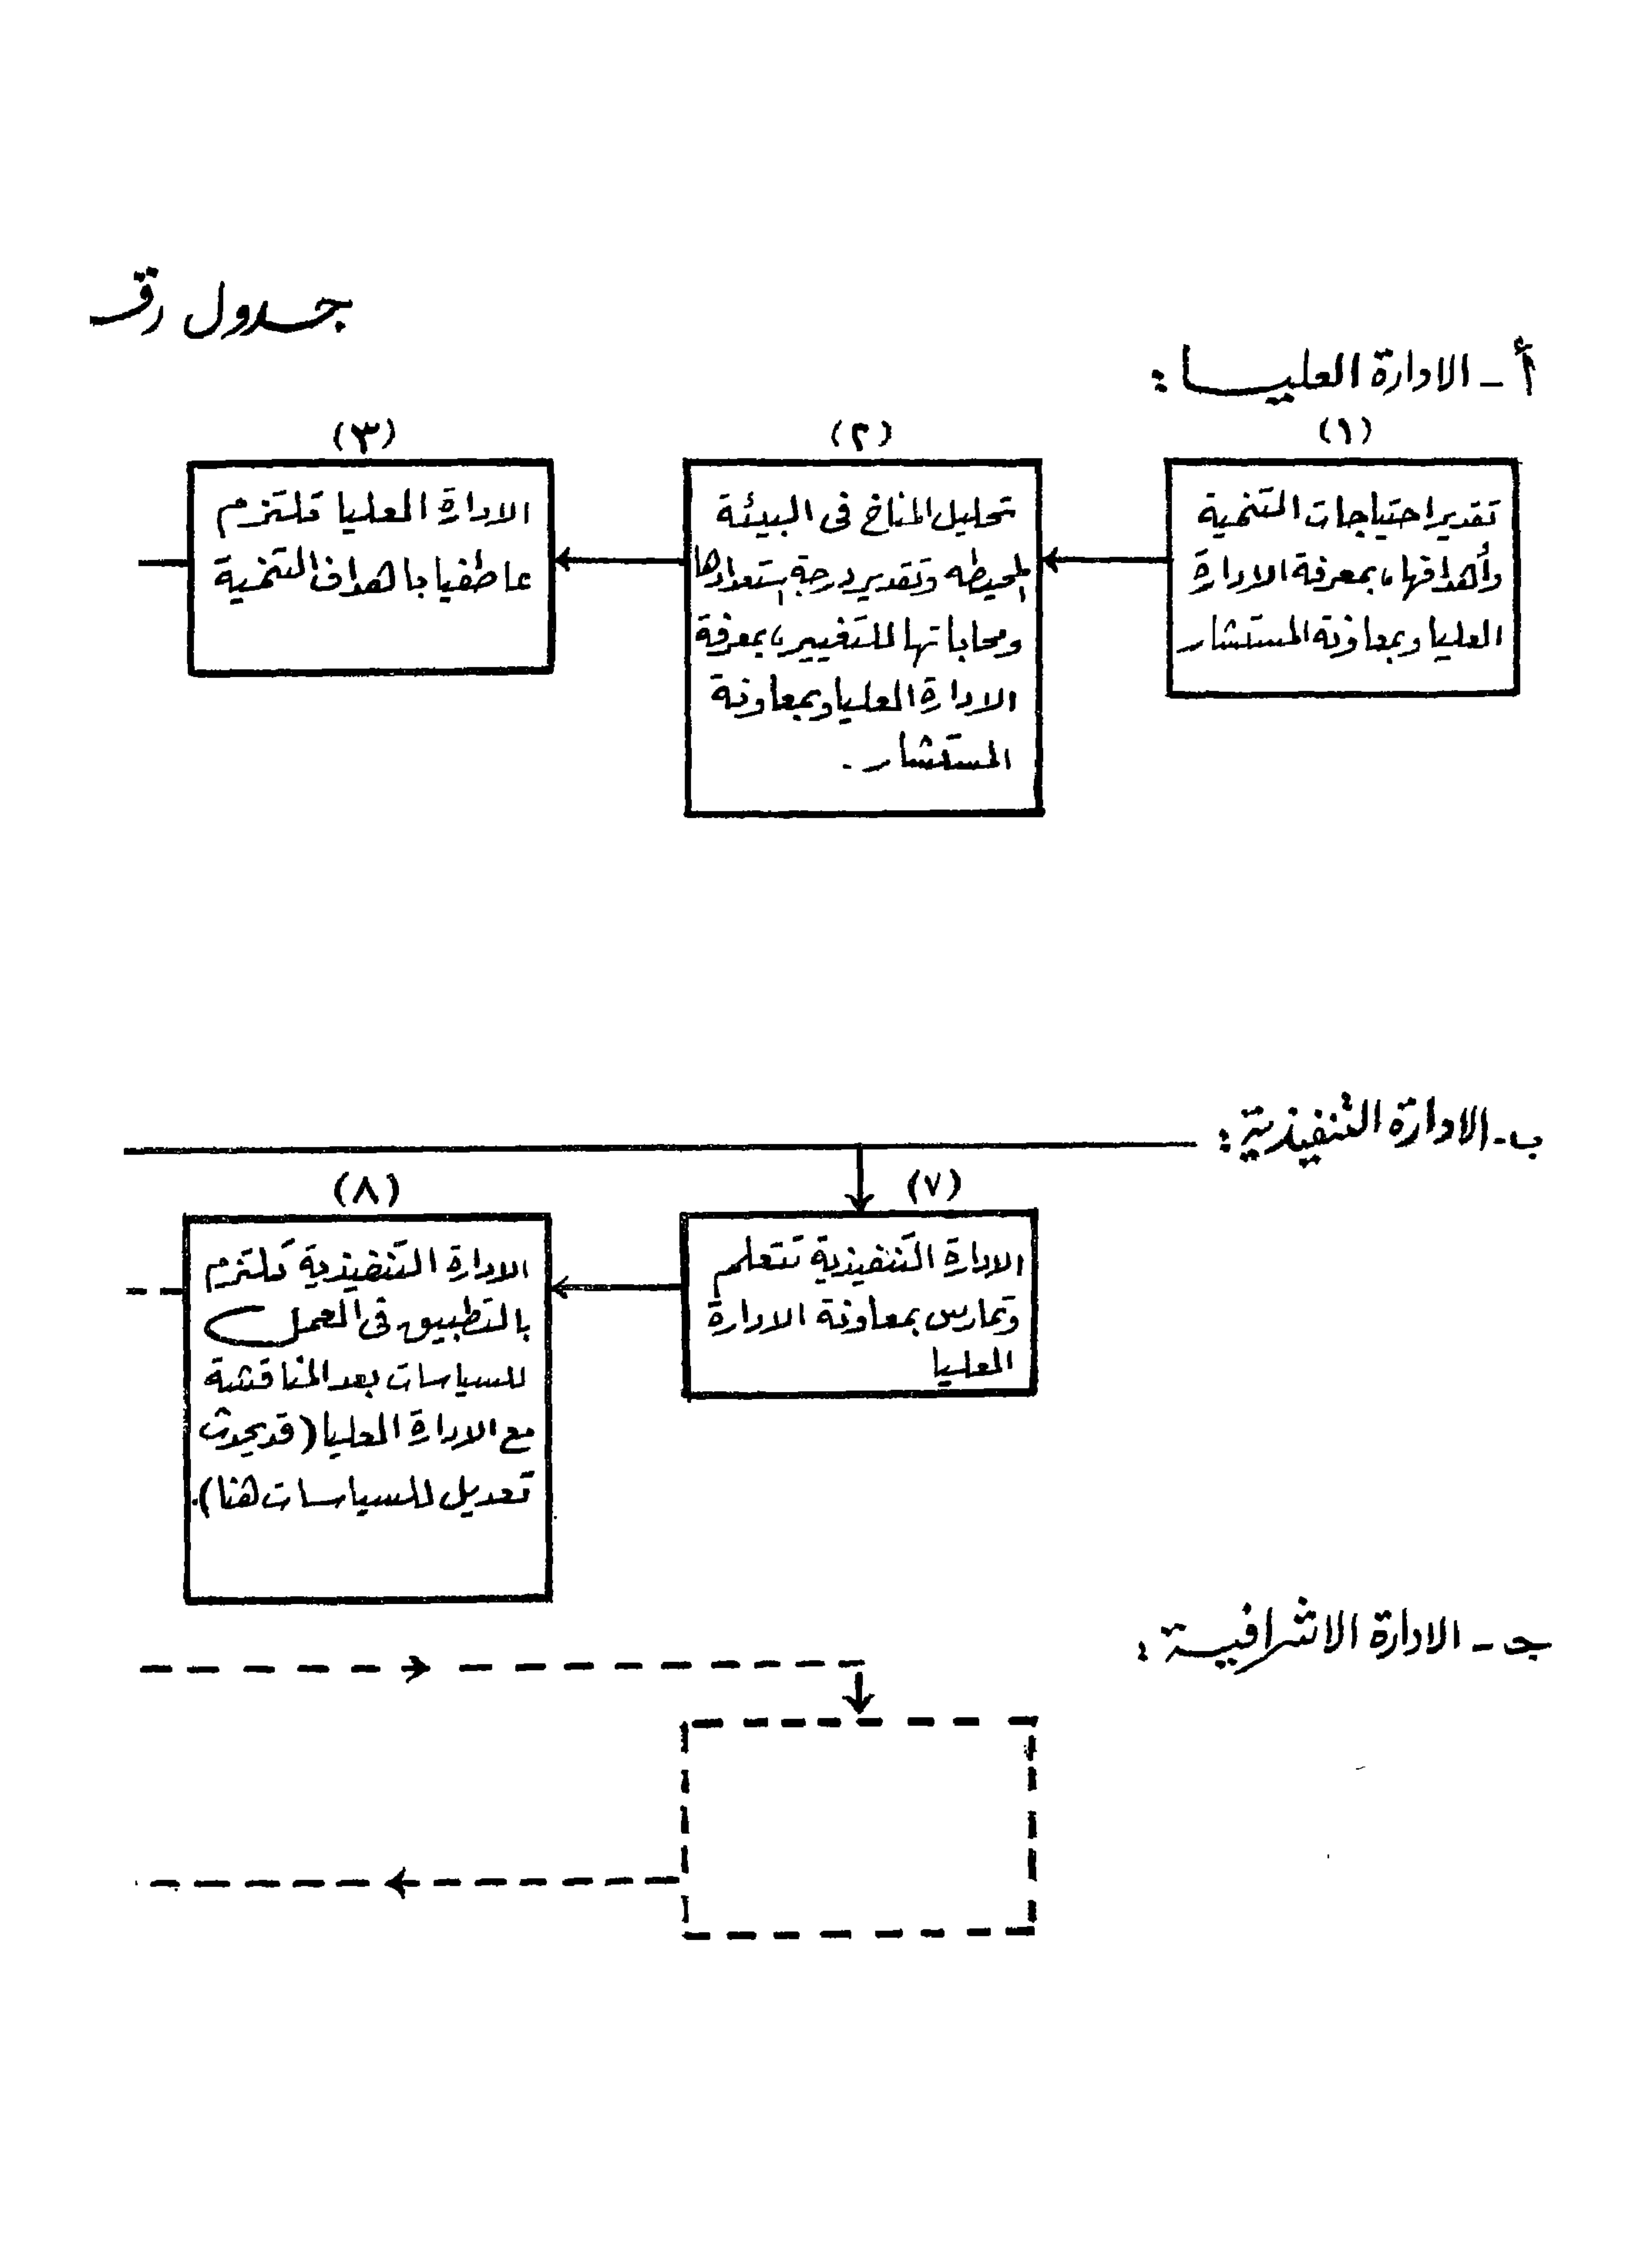 جدول رقـ
أ - الادارة العليـــا :
(١)
تقدير احتياجات التنمية
وأهدافها، بمعرفة الادارة
العليا وبمعاونة المستشار
(٢)
تحليل المناخ فى البيئة
المحيطه وتقدير درجة إستعدادها
ومحاباتها للتغيير، بمعرفة
الادارة العليا وبمعاونة
المستشار .
(٣)
الادارة العليا تلتزم
عاطفيا باهداف التنمية
ب - الادارة التنفيذية :
(٧)
الادارة التنفيذية تتعلم
وتمارس بمعاونة الادارة
العليا
(٨)
الادارة التنفيذية تلتزم
بالتطبيق فى العمل
للسياسات بعد المناقشة
مع الادارة العليا (قد يحدث
تعديل للسياسات هنا).
جـ - الادارة الاشرافيــة :